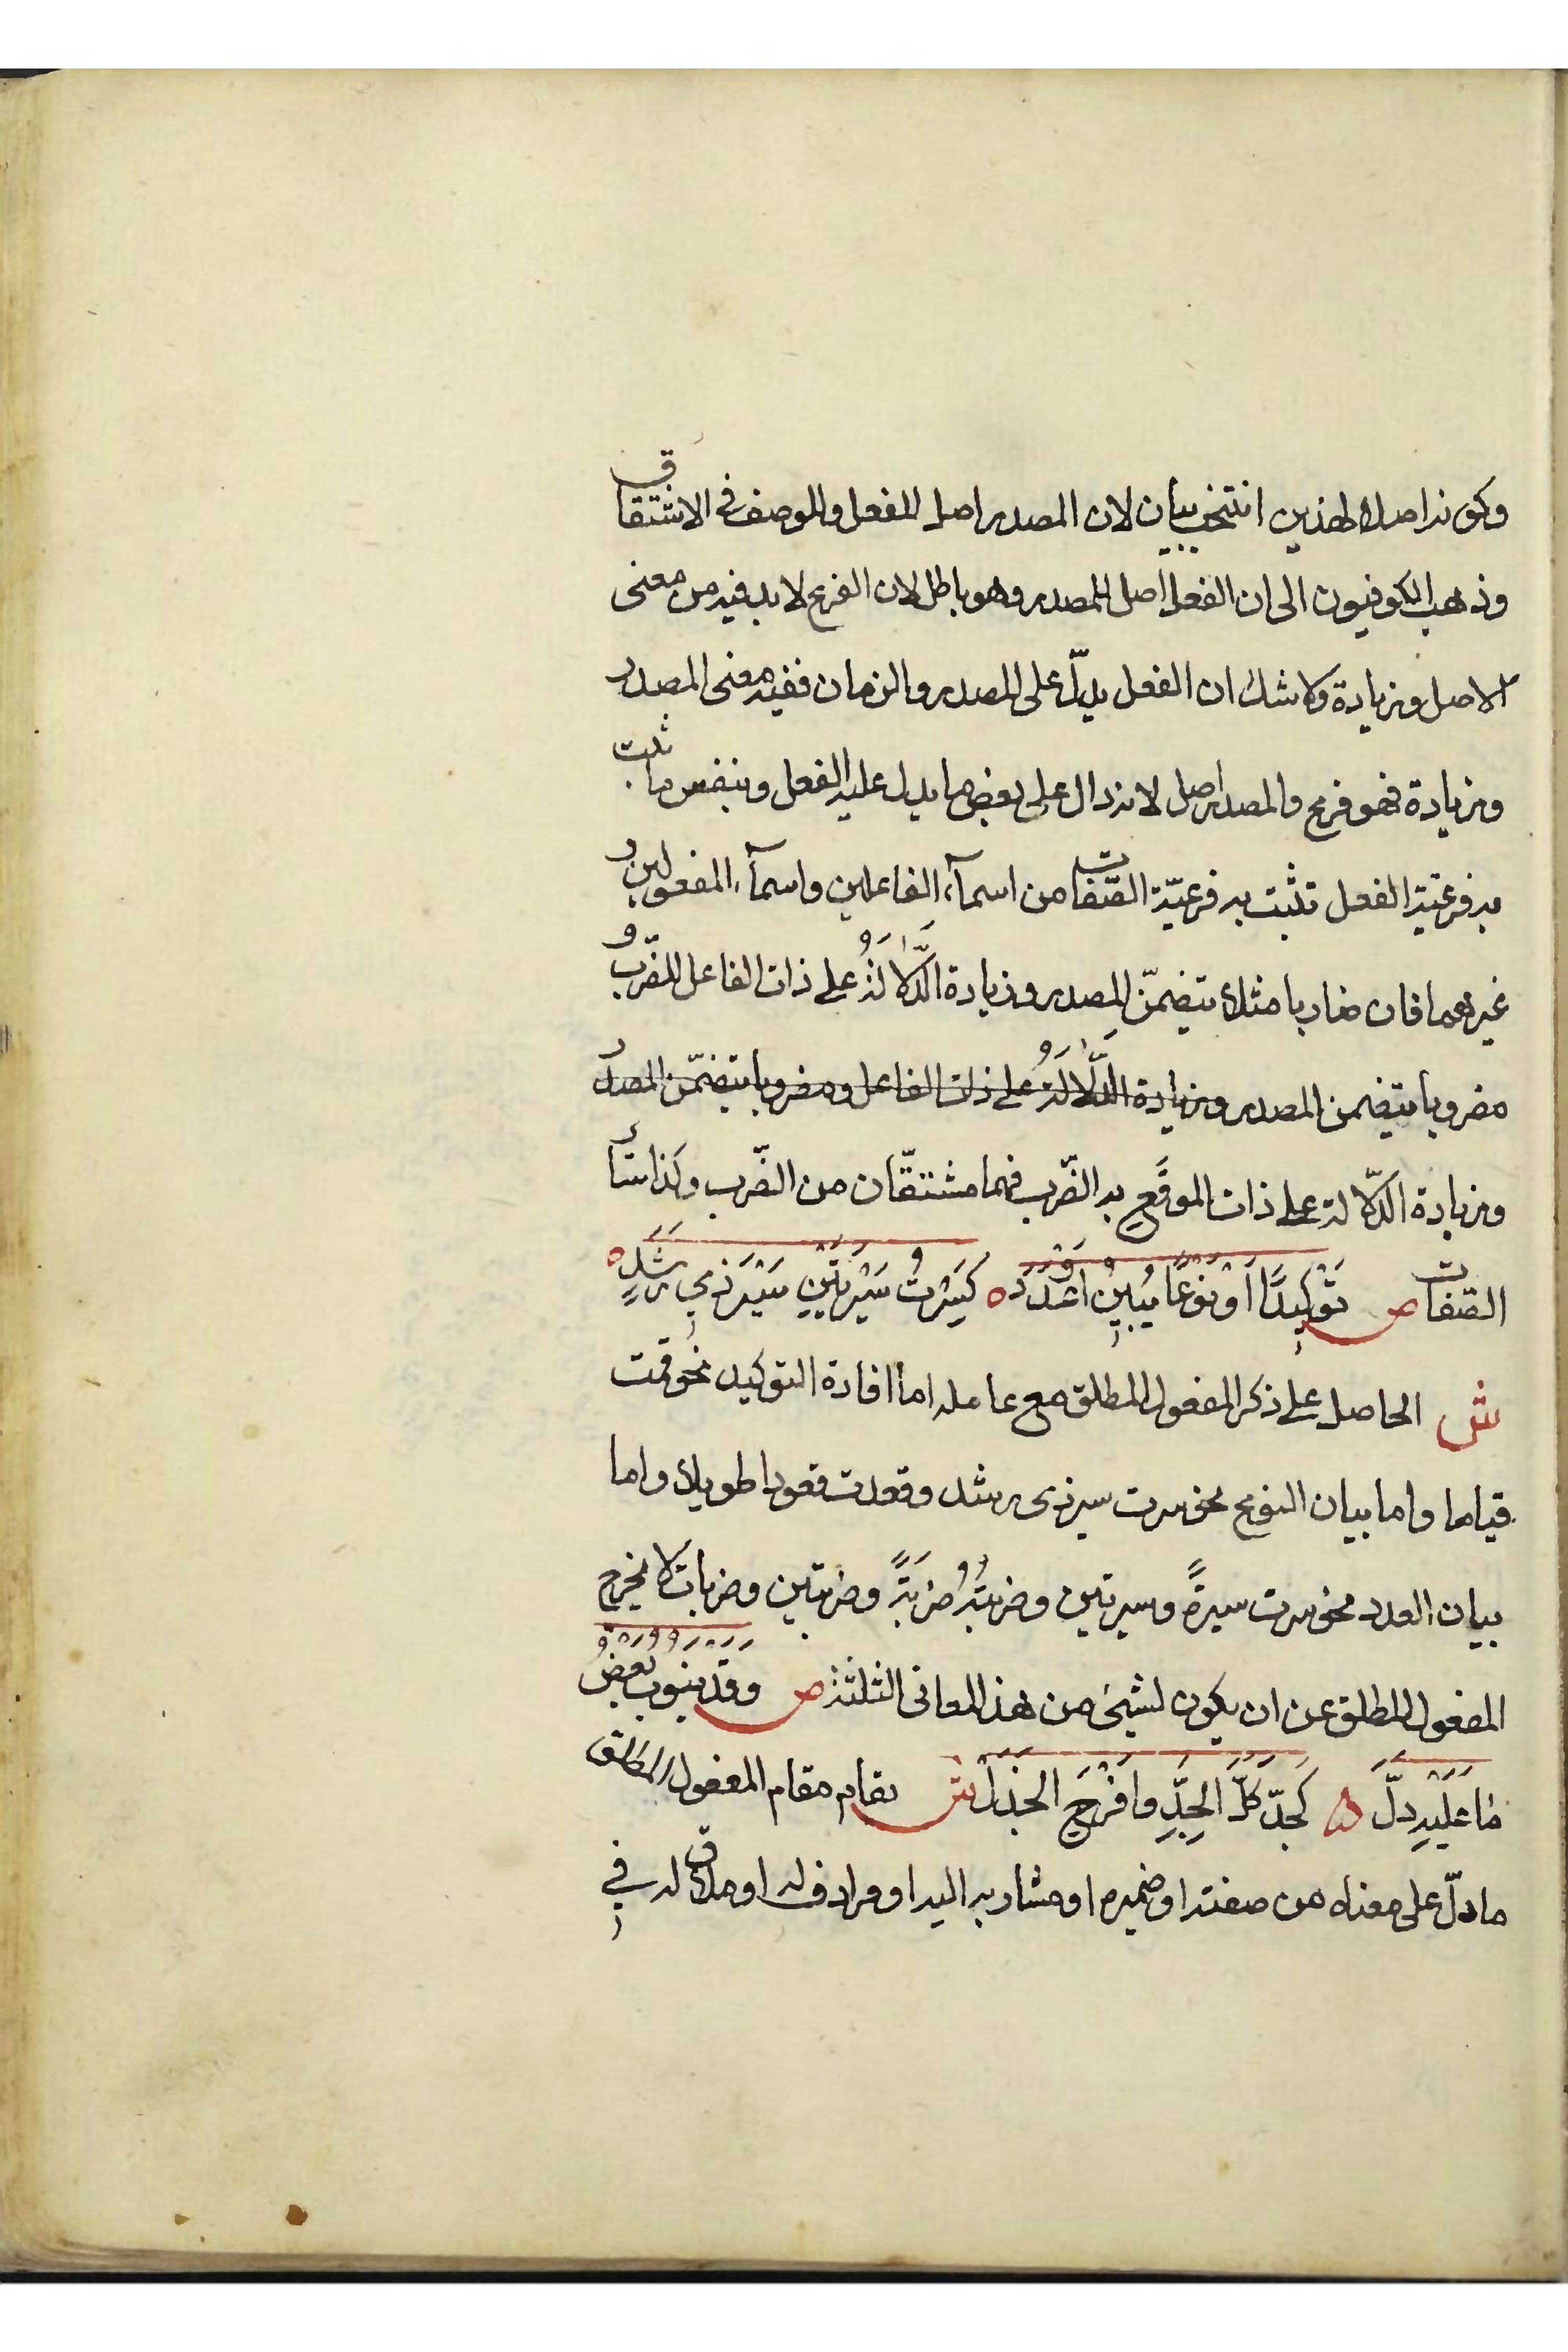 وكونه اصلا لهذين انتخب بيان لان المصدر اصل للفعل وللوصف في الاشتقاق
وذهب الكوفيون الى ان الفعل اصل للمصدر وهو باطل لان الفرع لا بد فيه من معنى
الاصل وزيادة ولا شك ان الفعل يدلّ على المصدر والزمان ففيه معنى المصدر
وزيادة فهو فرع والمصدر اصل لانه دال على بعض ما يدل عليه الفعل وبنفس ما ثبت
به فرعية الفعل تثبت به فرعيّة الصّفات من اسمآء الفاعلين واسمآء المفعولين و
غيرهما فان ضاربا مثلا يتضمّن المصدر وزيادة الدَّلالَةُ على ذات الفاعل للضّرب و
مضروبا يتضمن المصدر وزيادة الدَّلالَةُ على ذات الفاعل ومضروبا يتضمّن المصدر
وزيادة الدّلالة على ذات الموقَع به الضّرب فهما مشتقّان من الضّرب وكذا سائر
الصّفات ص تَوْكِيدًا اَوْ نَوْعًا يُبِينُ اَوْ عَدَدْ ه كَسِرْتُ سَيْرَتَيْنِ سَيْرَ ذِي رَشَدٍ ه
ش الحاصل على ذكر المفعول المطلق مع عامله اما افادة التوكيد نحو قمت
قياما واما بيان النوع نحو سرت سير ذى رشد وقعدت قعودا طويلا واما
بيان العدد نحو سرت سيرةً وسيرتين وضربتُهُ ضربَةً وضربتين وضربات لا يخرج
المفعول المطلق عن ان يكون لشيئ من هذا المعانى الثلثة ص وَقَدْ يَنُوبُ بَعْضُ
مَا عَلَيْهِ دلَّ ه كَجِدَّ كلَّ الجِدِّ وافْرَحِ الجَذَلْ ش يقام مقام المفعول المطلق
ما دلّ على معناه من صفته او ضميره او مشار به اليه او مرادف له او ملاق له في